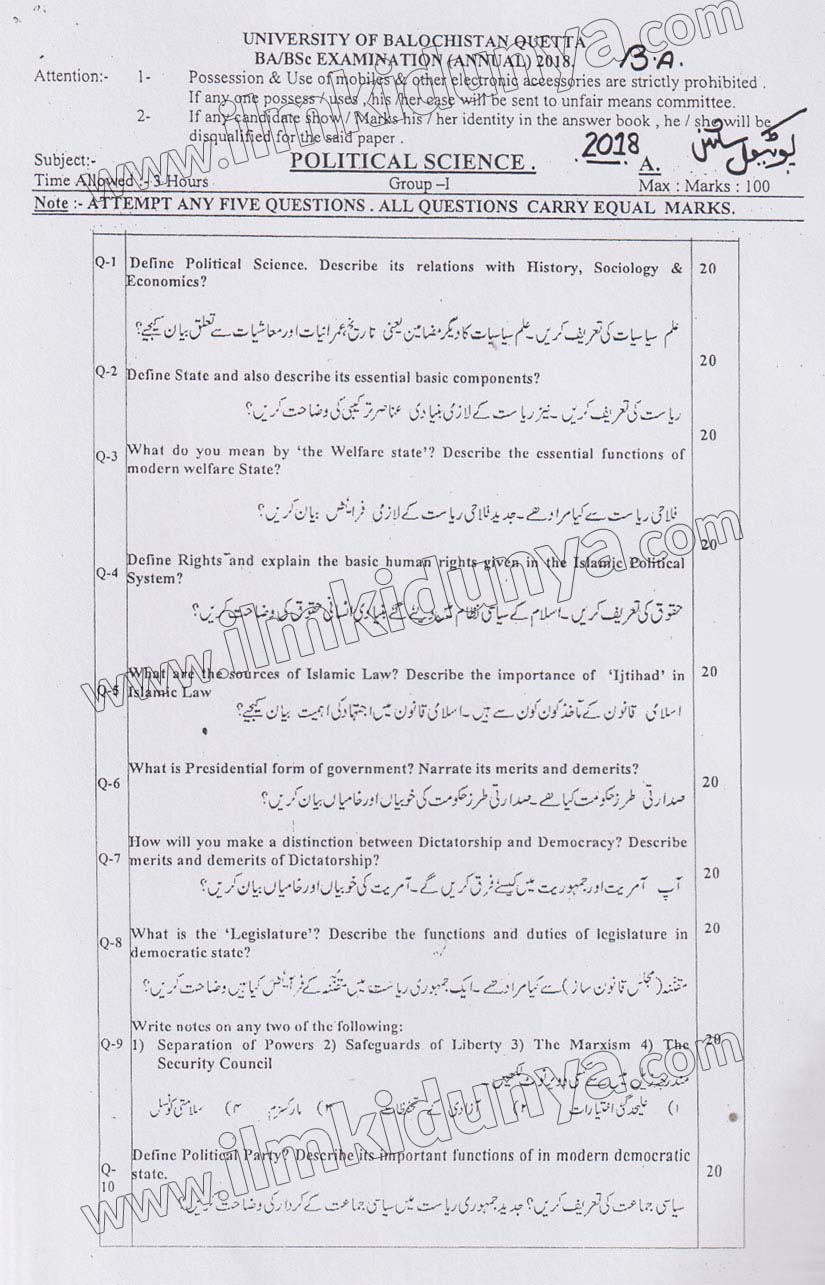 UNIVERSITY OF BALOCHISTAN QUETTA
BA/BSc EXAMINATION (ANNUAL) 2018.
B.A.
Attention:- 1- Possession & Use of mobiles & other electronic accessories are strictly prohibited .
If any one possess / uses , his /her case will be sent to unfair means committee.
2- If any candidate show / Marks his / her identity in the answer book , he / she will be
disqualified for the said paper .
2018 پولیٹیکل سائنس
Subject:- POLITICAL SCIENCE . A.
Time Allowed :- 3 Hours Group –I Max : Marks : 100
Note :- ATTEMPT ANY FIVE QUESTIONS . ALL QUESTIONS CARRY EQUAL MARKS.
Q-1 Define Political Science. Describe its relations with History, Sociology & 20
Economics?
علم سیاسیات کی تعریف کریں۔ علم سیاسیات کا دیگر مضامین یعنی تاریخ عمرانیات اور معاشیات سے تعلق بیان کیجیے؟
20
Q-2 Define State and also describe its essential basic components?
ریاست کی تعریف کریں ۔ نیز ریاست کے لازمی بنیادی عناصر ترکیبی کی وضاحت کریں؟
20
Q-3 What do you mean by ‘the Welfare state’? Describe the essential functions of
modern welfare State?
فلاحی ریاست سے کیا مراد ھے۔ جدید فلاحی ریاست کے لازمی فرائض بیان کریں؟
20
Q-4 Define Rights and explain the basic human rights given in the Islamic Political
System?
حقوق کی تعریف کریں۔ اسلام کے سیاسی نظام میں دیئے گئے بنیادی انسانی حقوق کی وضاحت کریں؟
What are the sources of Islamic Law? Describe the importance of ‘Ijtihad’ in 20
Q-5 Islamic Law
اسلامی قانون کے مآخذ کون کون سے ہیں۔ اسلامی قانون میں اجتہاد کی اہمیت بیان کیجیے؟
Q-6 What is Presidential form of government? Narrate its merits and demerits? 20
صدارتی طرز حکومت کیا ھے۔ صدارتی طرز حکومت کی خوبیاں اور خامیاں بیان کریں؟
How will you make a distinction between Dictatorship and Democracy? Describe
Q-7 merits and demerits of Dictatorship? 20
آپ آمریت اور جمہوریت میں کیسے فرق کریں گے۔ آمریت کی خوبیاں اور خامیاں بیان کریں؟
What is the ‘Legislature’? Describe the functions and duties of legislature in 20
Q-8 democratic state?
مقننہ (مجلس قانون ساز) سے کیا مراد ھے۔ ایک جمہوری ریاست میں مقننہ کے فرائض کیا ہیں وضاحت کریں؟
Write notes on any two of the following:
Q-9 1) Separation of Powers 2) Safeguards of Liberty 3) The Marxism 4) The 20
Security Council
مندرجہ ذیل میں سے کسی دو پر نوٹ لکھیں۔
۱) علیحدگئی اختیارات ۲) آزادی کے تحفظات ۳) مارکسزم ۴) سلامتی کونسل
Define Political Party? Describe its important functions of in modern democratic
Q-10 state. 20
سیاسی جماعت کی تعریف کریں؟ جدید جمہوری ریاست میں سیاسی جماعت کے کردار کی وضاحت
www.ilmkidunya.com
www.ilmkidunya.com
www.ilmkidunya.com